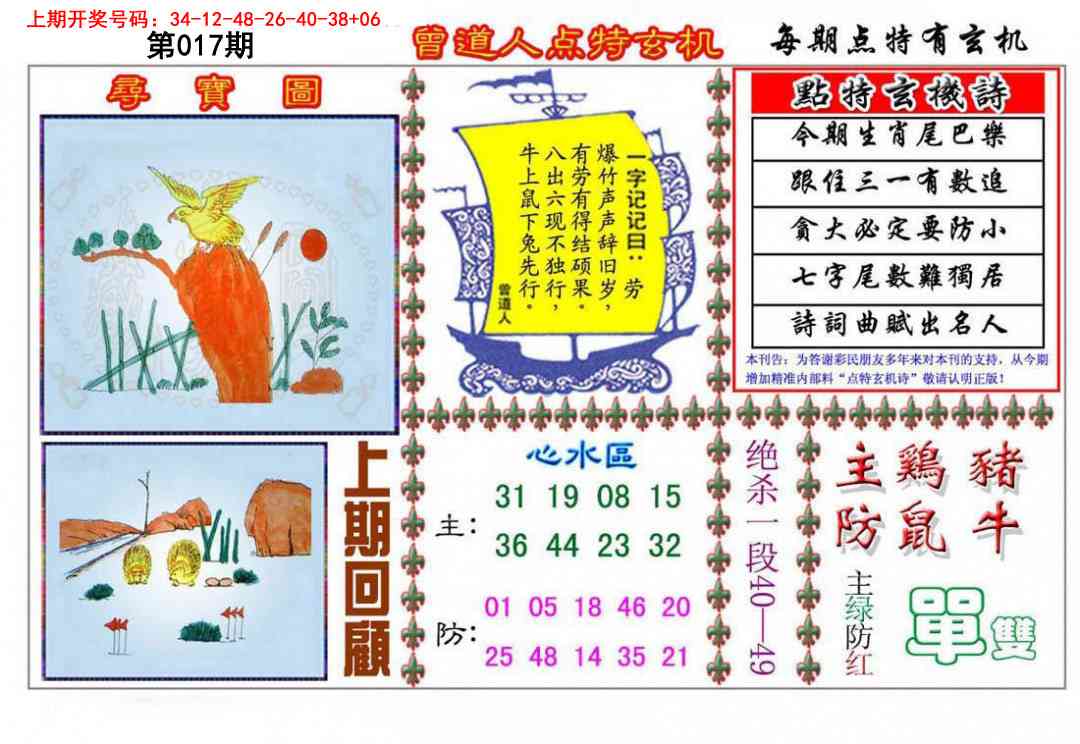 上期开奖号码：34-12-48-26-40-38+06
第017期
曾道人点特玄机
每期点特有玄机
尋寶圖
一字记记曰：劳
爆竹声声辞旧岁，
有劳有得结硕果。
八出六现不独行，
牛上鼠下兔先行。
曾道人
點特玄機詩
今期生肖尾巴樂
跟住三一有數追
貪大必定要防小
七字尾數難獨居
詩詞曲賦出名人
本刊告：为答谢彩民朋友多年来对本刊的支持，从今期
增加精准内部料“点特玄机诗”敬请认明正版！
上期回顧
心水區
主：
31 19 08 15
36 44 23 32
防：
01 05 18 46 20
25 48 14 35 21
绝杀一段40—49
主鷄豬
防鼠牛
主绿防红
單雙